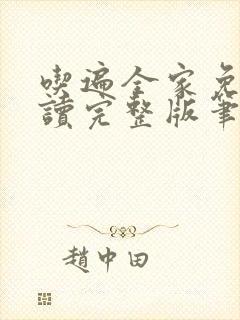 喫遍全家免
讀完整版筆
趙中田